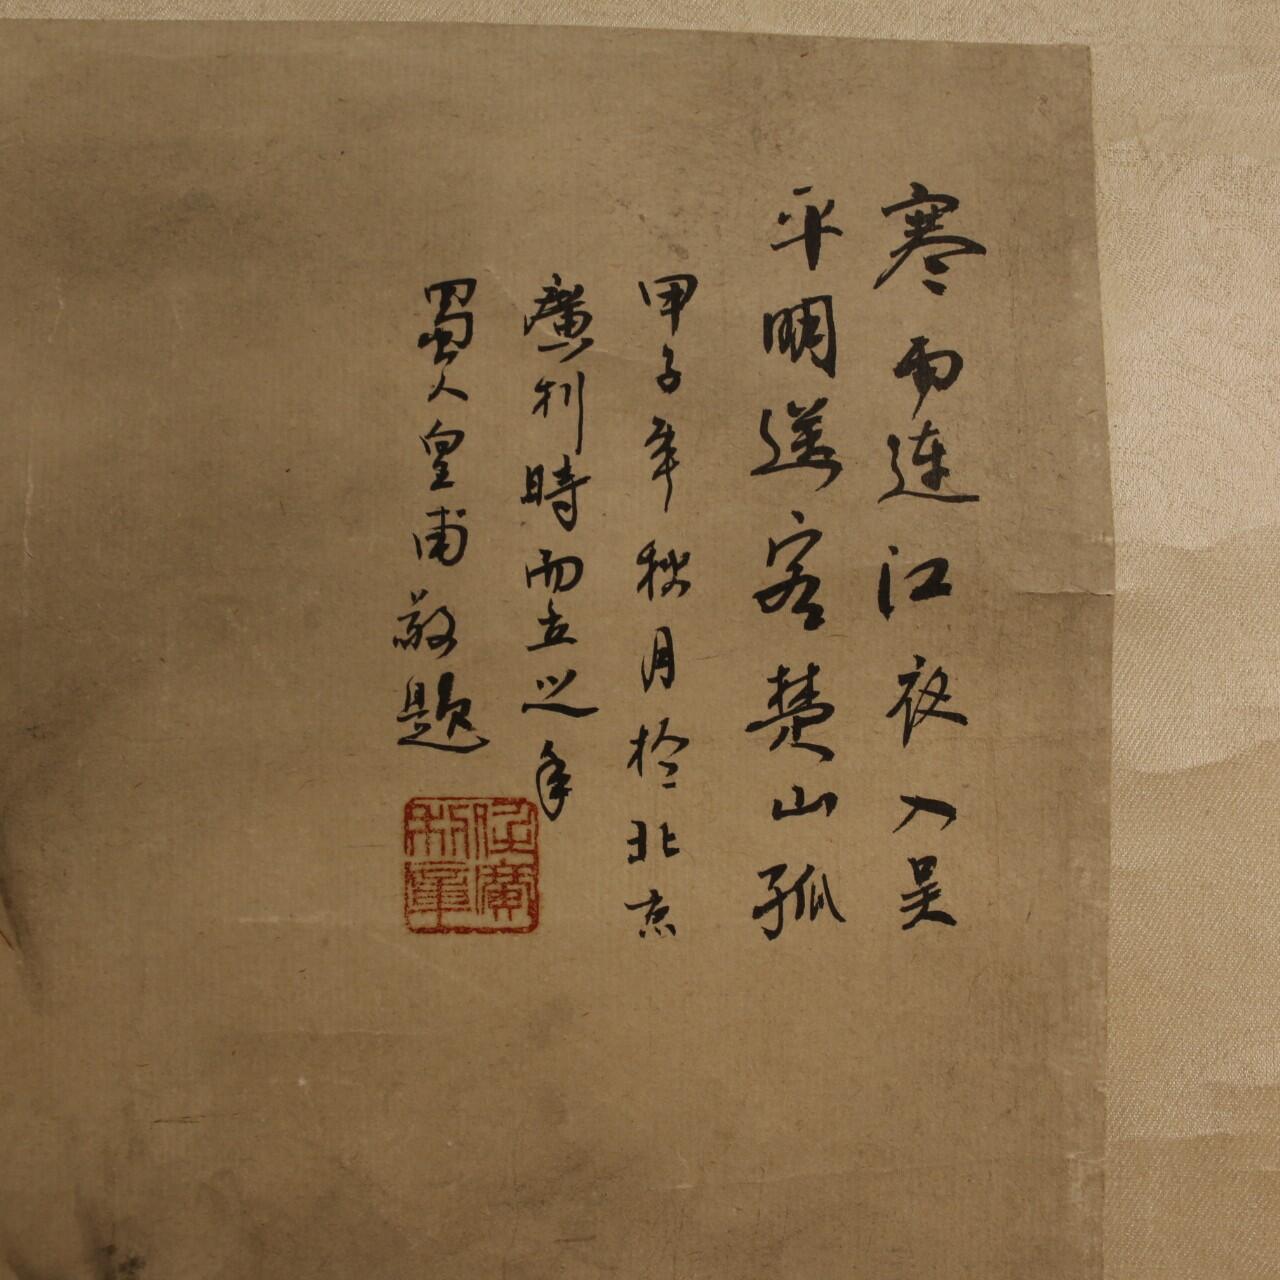 寒雨連江夜入吴
平明送客楚山孤
甲子年秋月於北京
廣利時而立之年
蜀人皇甫敬題